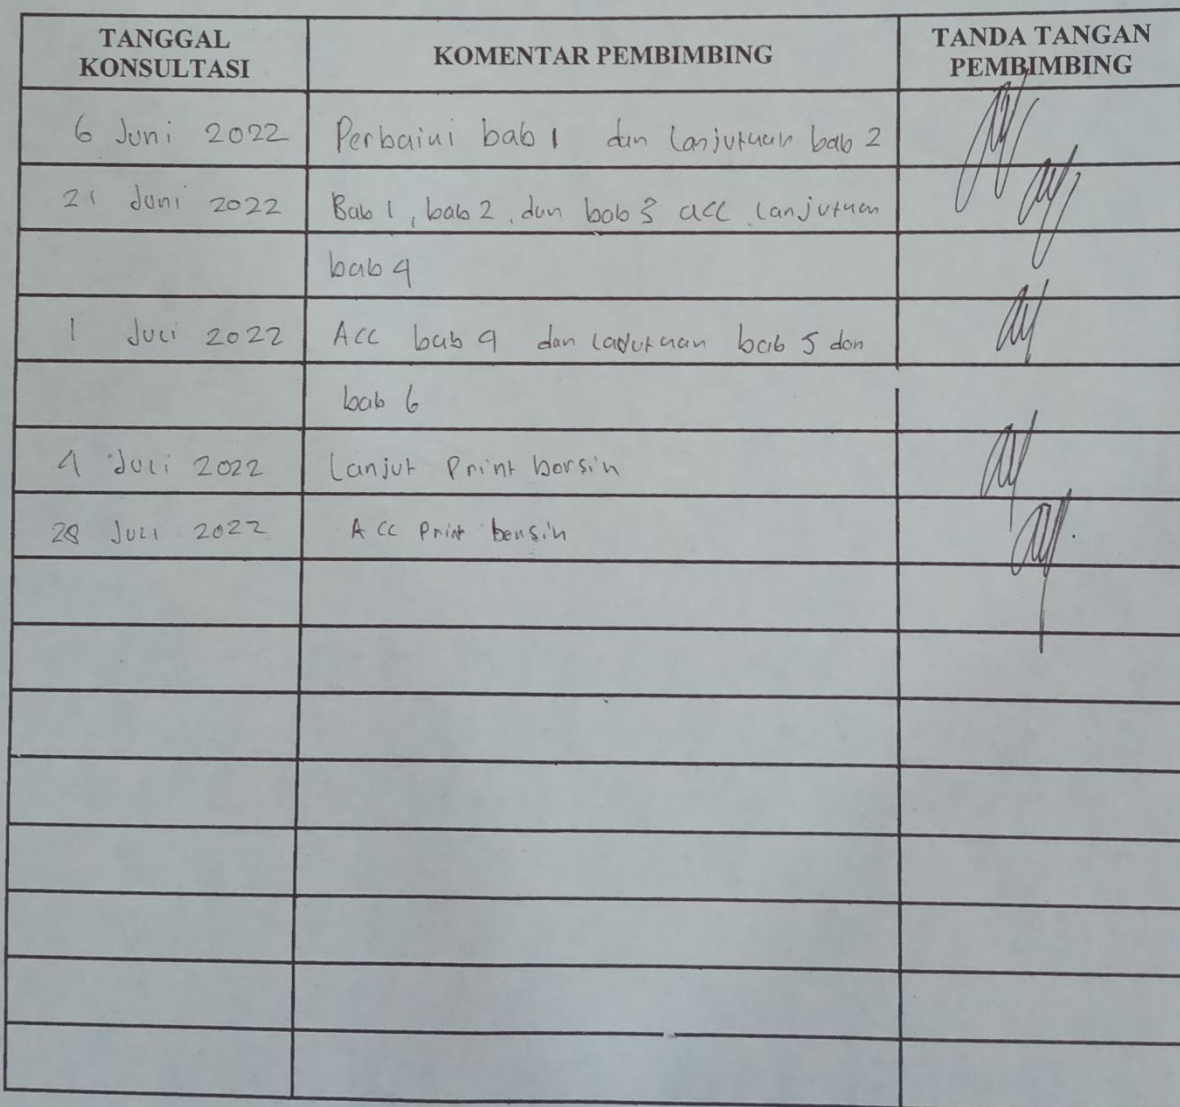 TANGGAL KONSULTASI KOMENTAR PEMBIMBING TANDA TANGAN PEMBIMBING
6 Juni 2022 Perbaiui bab 1 dan lanjutuan bab 2
21 Juni 2022 Bab 1, bab 2, dan bab 3 acc lanjutuan
bab 4
1 Juli 2022 ACC bab 4 dan lanjutuan bab 5 dan
bab 6
4 Juli 2022 Lanjut Print borsin
28 Juli 2022 ACC Print bensin